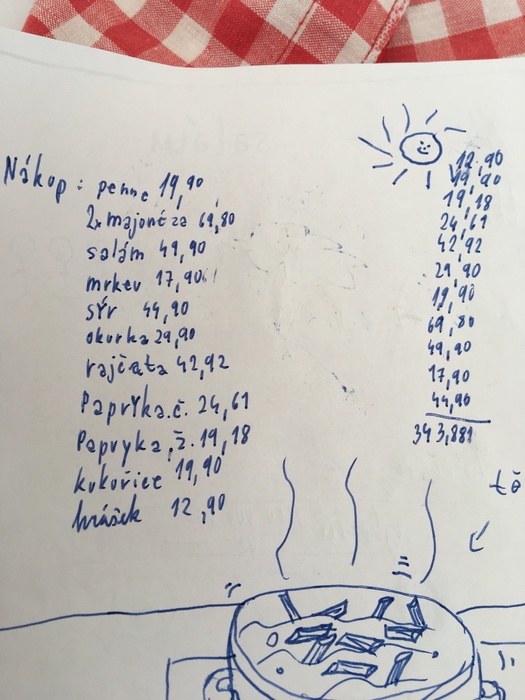 Nákup: penne 19,90
2x majonéza 69,80
salám 49,90
mrkev 17,90
sýr 44,90
okurka 29,90
rajčata 42,92
Papryka.č. 24,61
Papryka,ž. 19,18
kukuřice 19,90
hrášek 12,90
12,90
19,90
19,18
24,61
42,92
29,90
19,90
69,80
49,90
17,90
44,90
343,881
tě